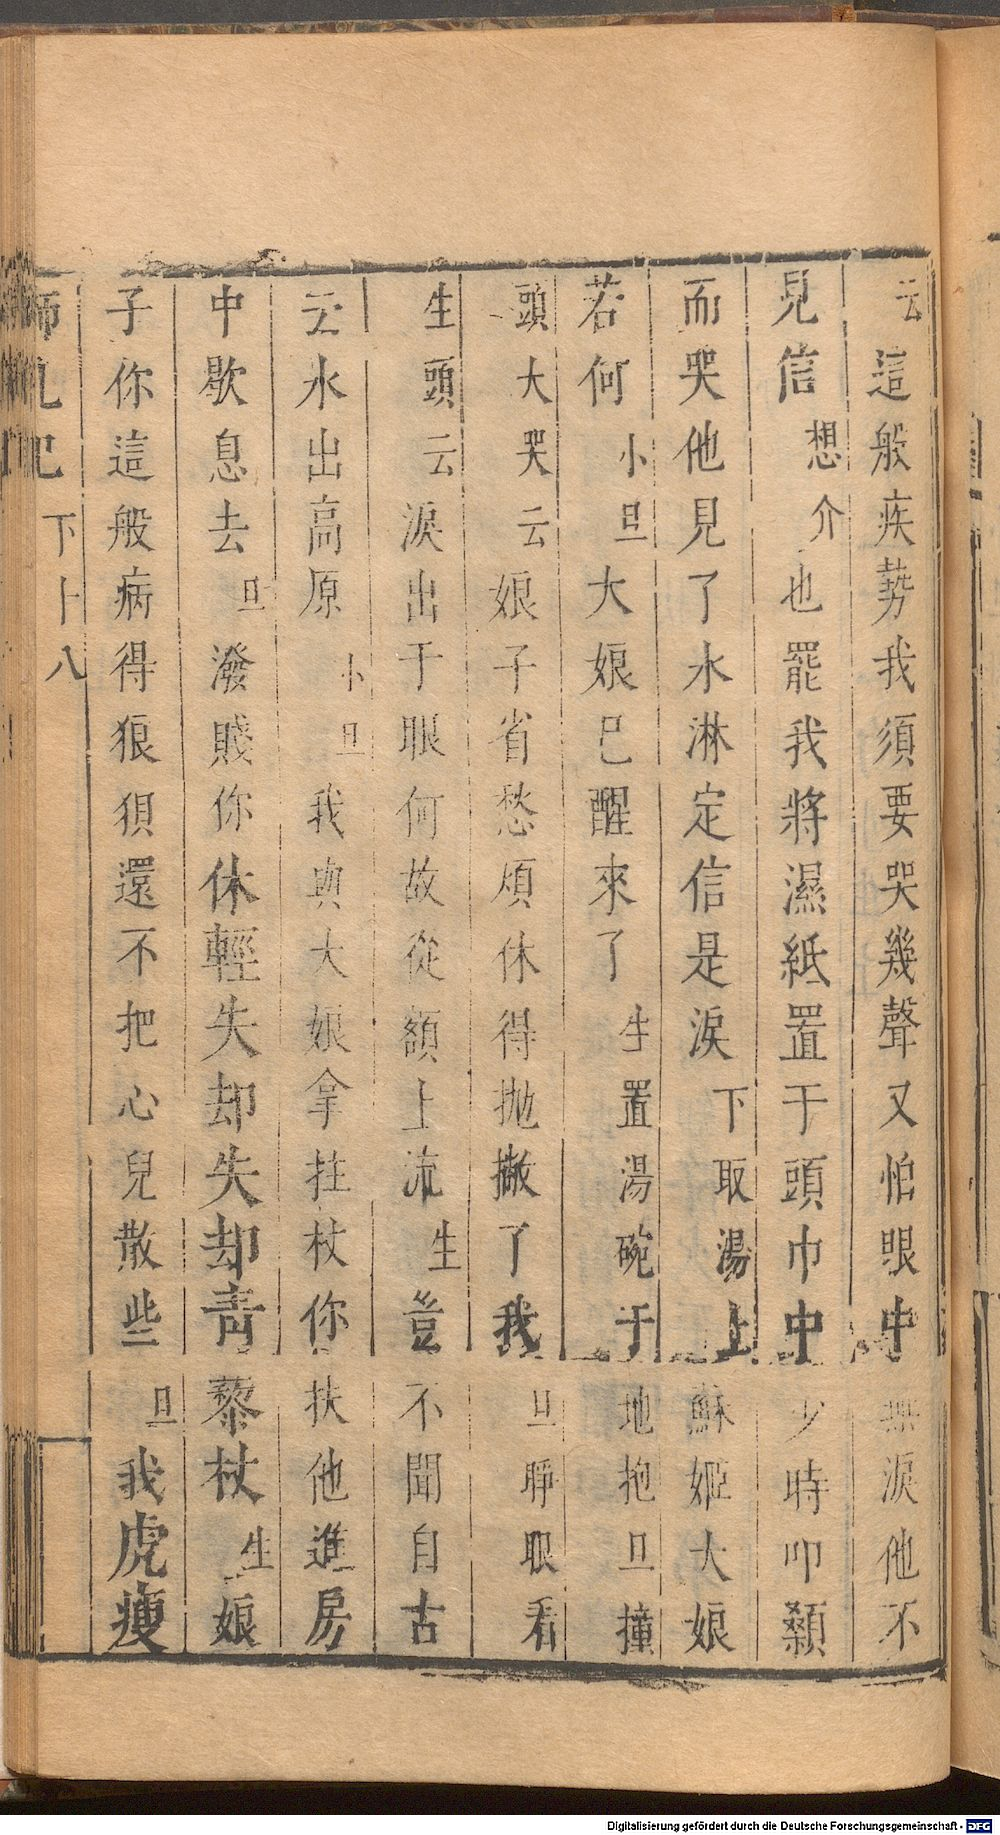 云這般疾勢我須要哭幾聲又怕眼中無淚他不
見信想介也罷我將濕紙置于頭巾中少時叩顙
而哭他見了水淋定信是淚下取湯上蘇姬大娘
若何小旦大娘已醒來了生置湯碗于地抱旦撞
頭大哭云娘子省愁煩休得拋撇了我旦睜眼看
生頭云淚出于眼何故從額上流生豈不聞自古
云水出高原小旦我與大娘拿拄杖你扶他進房
中歇息去旦潑賤你休輕失却失却青藜杖生娘
子你這般病得狼狽還不把心兒散些旦我虎瘦
師乩記 下卜八
Digitalisierung gefördert durch die Deutsche Forschungsgemeinschaft - DFG